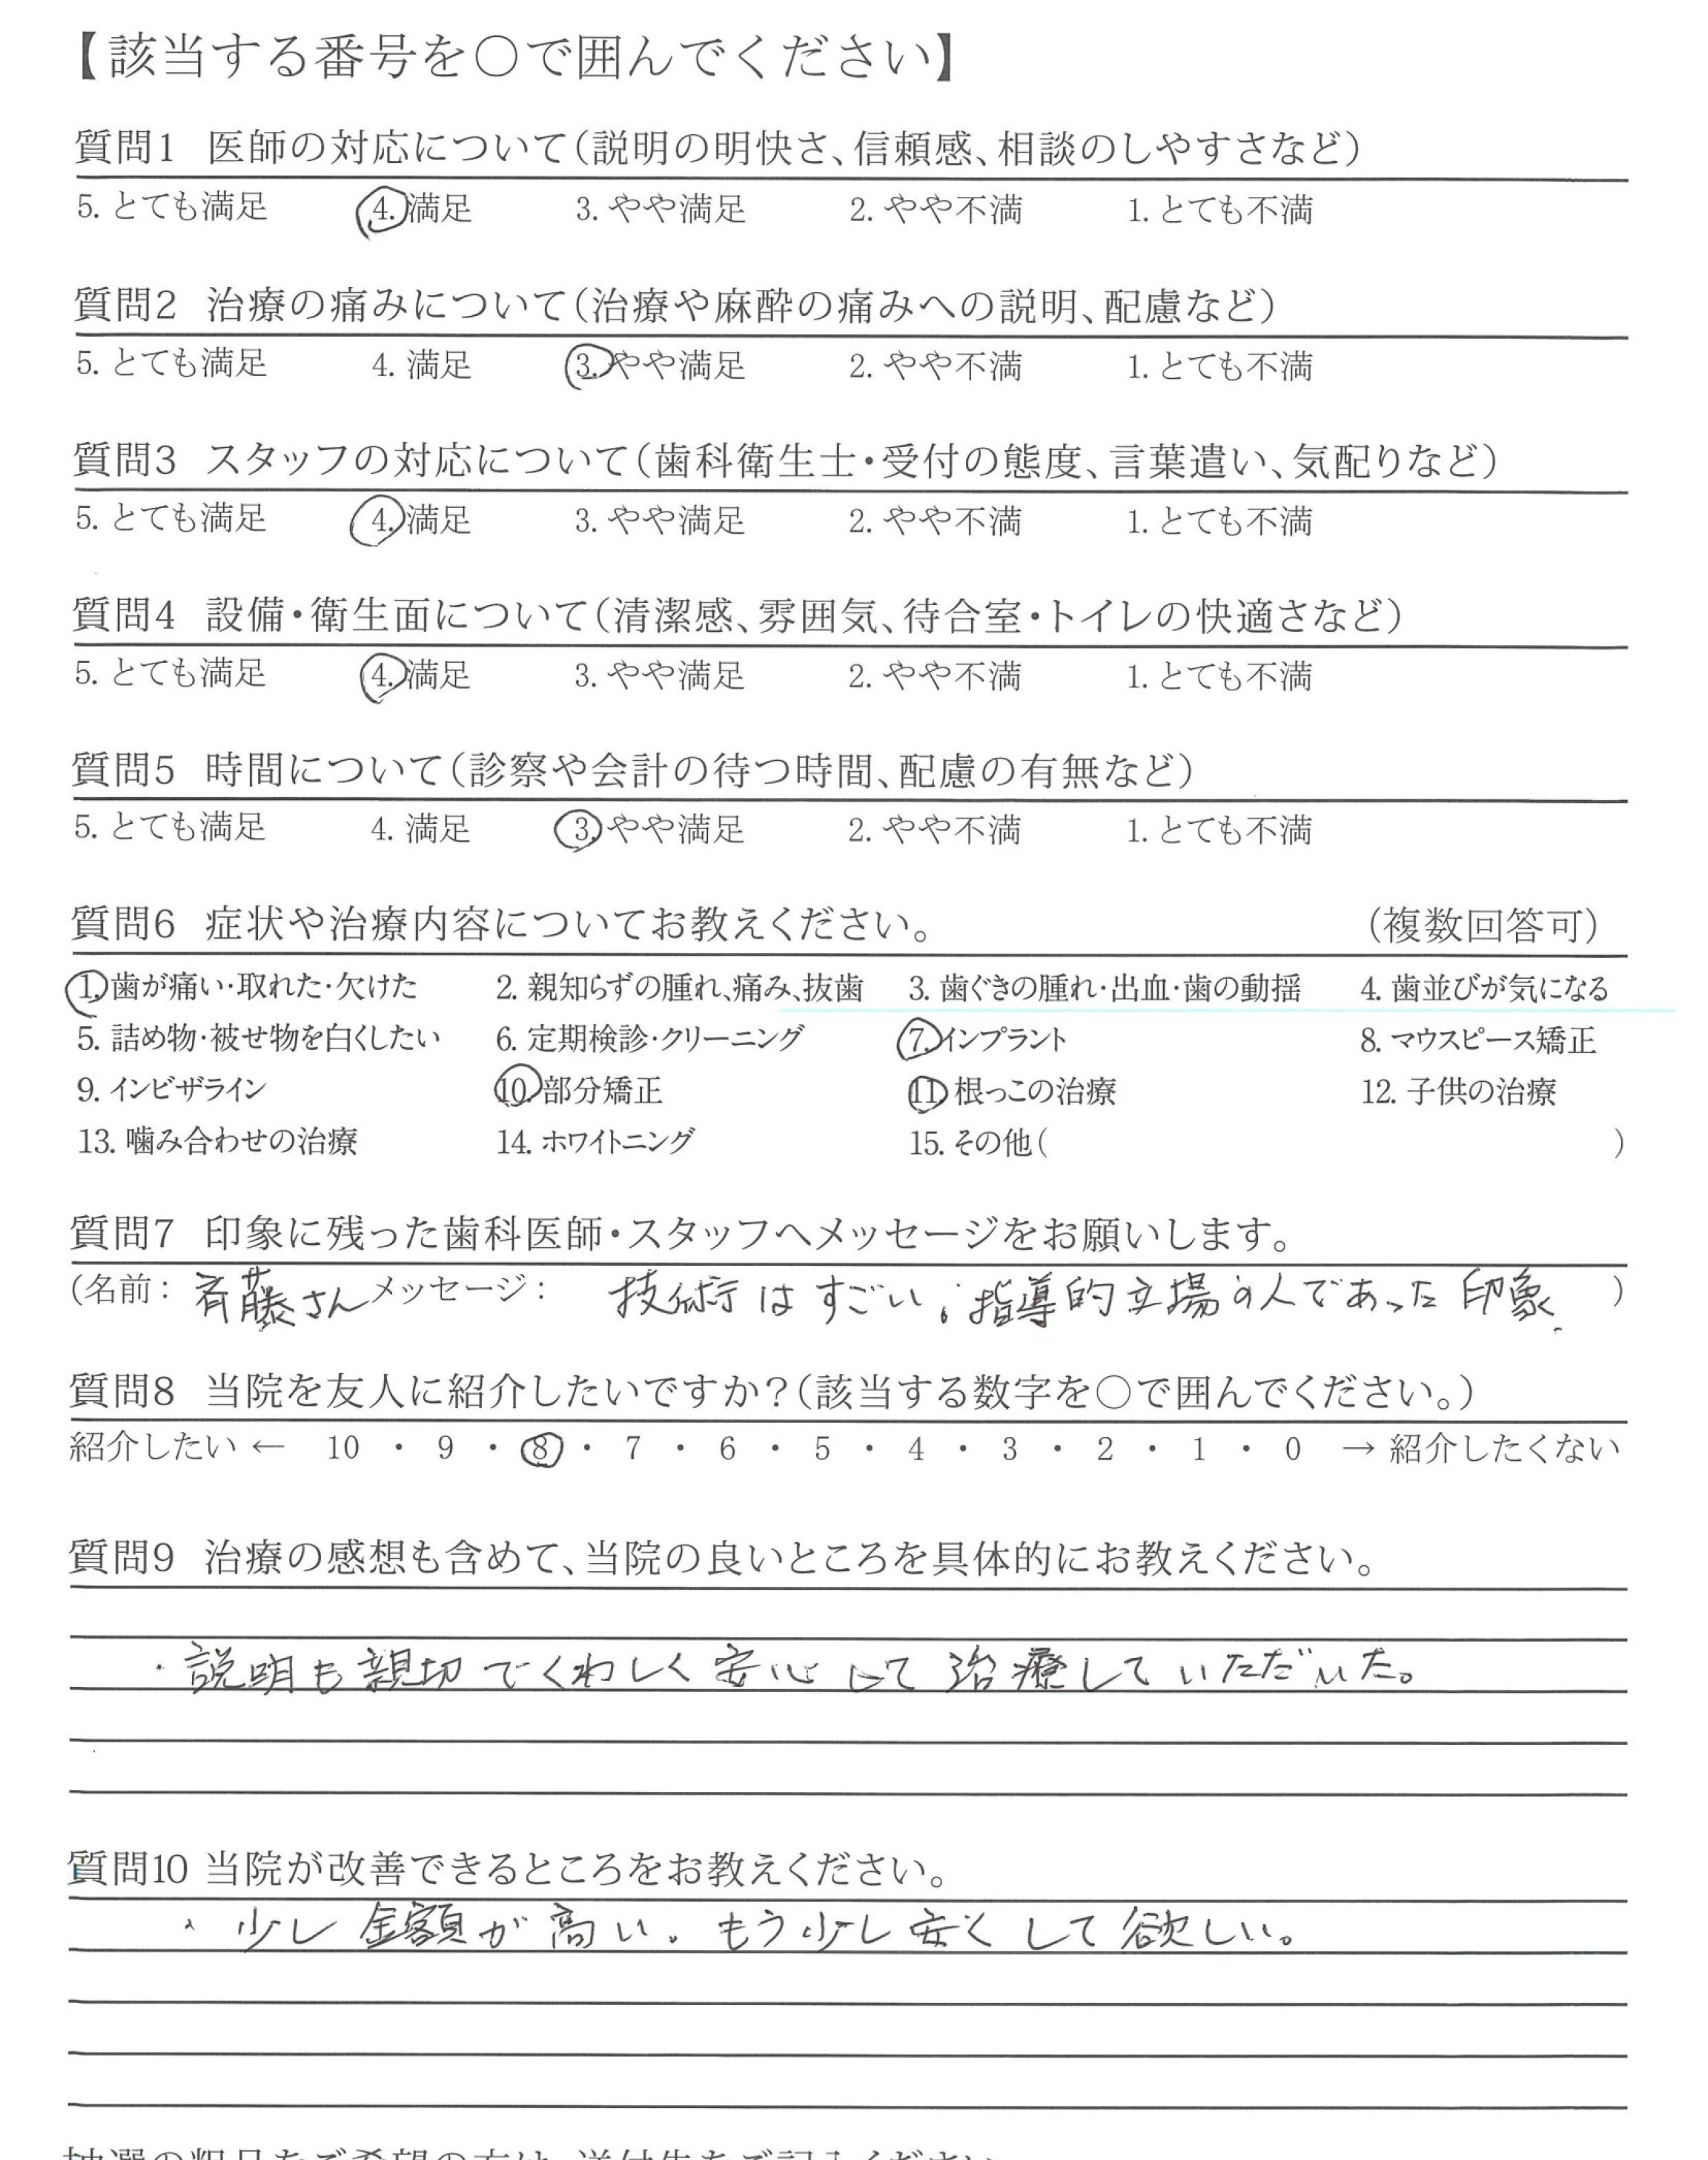 【該当する番号を〇で囲んでください】
質問1 医師の対応について(説明の明快さ、信頼感、相談のしやすさなど)
5. とても満足 4. 満足 3. やや満足 2. やや不満 1. とても不満
質問2 治療の痛みについて(治療や麻酔の痛みへの説明、配慮など)
5. とても満足 4. 満足 3. やや満足 2. やや不満 1. とても不満
質問3 スタッフの対応について(歯科衛生士・受付の態度、言葉遣い、気配りなど)
5. とても満足 4. 満足 3. やや満足 2. やや不満 1. とても不満
質問4 設備・衛生面について(清潔感、雰囲気、待合室・トイレの快適さなど)
5. とても満足 4. 満足 3. やや満足 2. やや不満 1. とても不満
質問5 時間について(診察や会計の待つ時間、配慮の有無など)
5. とても満足 4. 満足 3. やや満足 2. やや不満 1. とても不満
質問6 症状や治療内容についてお教えください。 (複数回答可)
1. 歯が痛い・取れた・欠けた 2. 親知らずの腫れ、痛み、抜歯 3. 歯ぐきの腫れ・出血・歯の動揺 4. 歯並びが気になる
5. 詰め物・被せ物を白くしたい 6. 定期検診・クリーニング 7. インプラント 8. マウスピース矯正
9. インビザライン 10. 部分矯正 11. 根っこの治療 12. 子供の治療
13. 噛み合わせの治療 14. ホワイトニング 15. その他( )
質問7 印象に残った歯科医師・スタッフへメッセージをお願いします。
(名前: 斉藤さん メッセージ: 技術はすごい。指導的立場の人であった印象. )
質問8 当院を友人に紹介したいですか?(該当する数字を〇で囲んでください。)
紹介したい ← 10 ・ 9 ・ 8 ・ 7 ・ 6 ・ 5 ・ 4 ・ 3 ・ 2 ・ 1 ・ 0 → 紹介したくない
質問9 治療の感想も含めて、当院の良いところを具体的にお教えください。
・説明も親切でくわしく安心して治療していただいた。
質問10 当院が改善できるところをお教えください。
・少し金額が高い。もう少し安くして欲しい。
抽選の粗品をご希望の方は、送付先をご記入ください